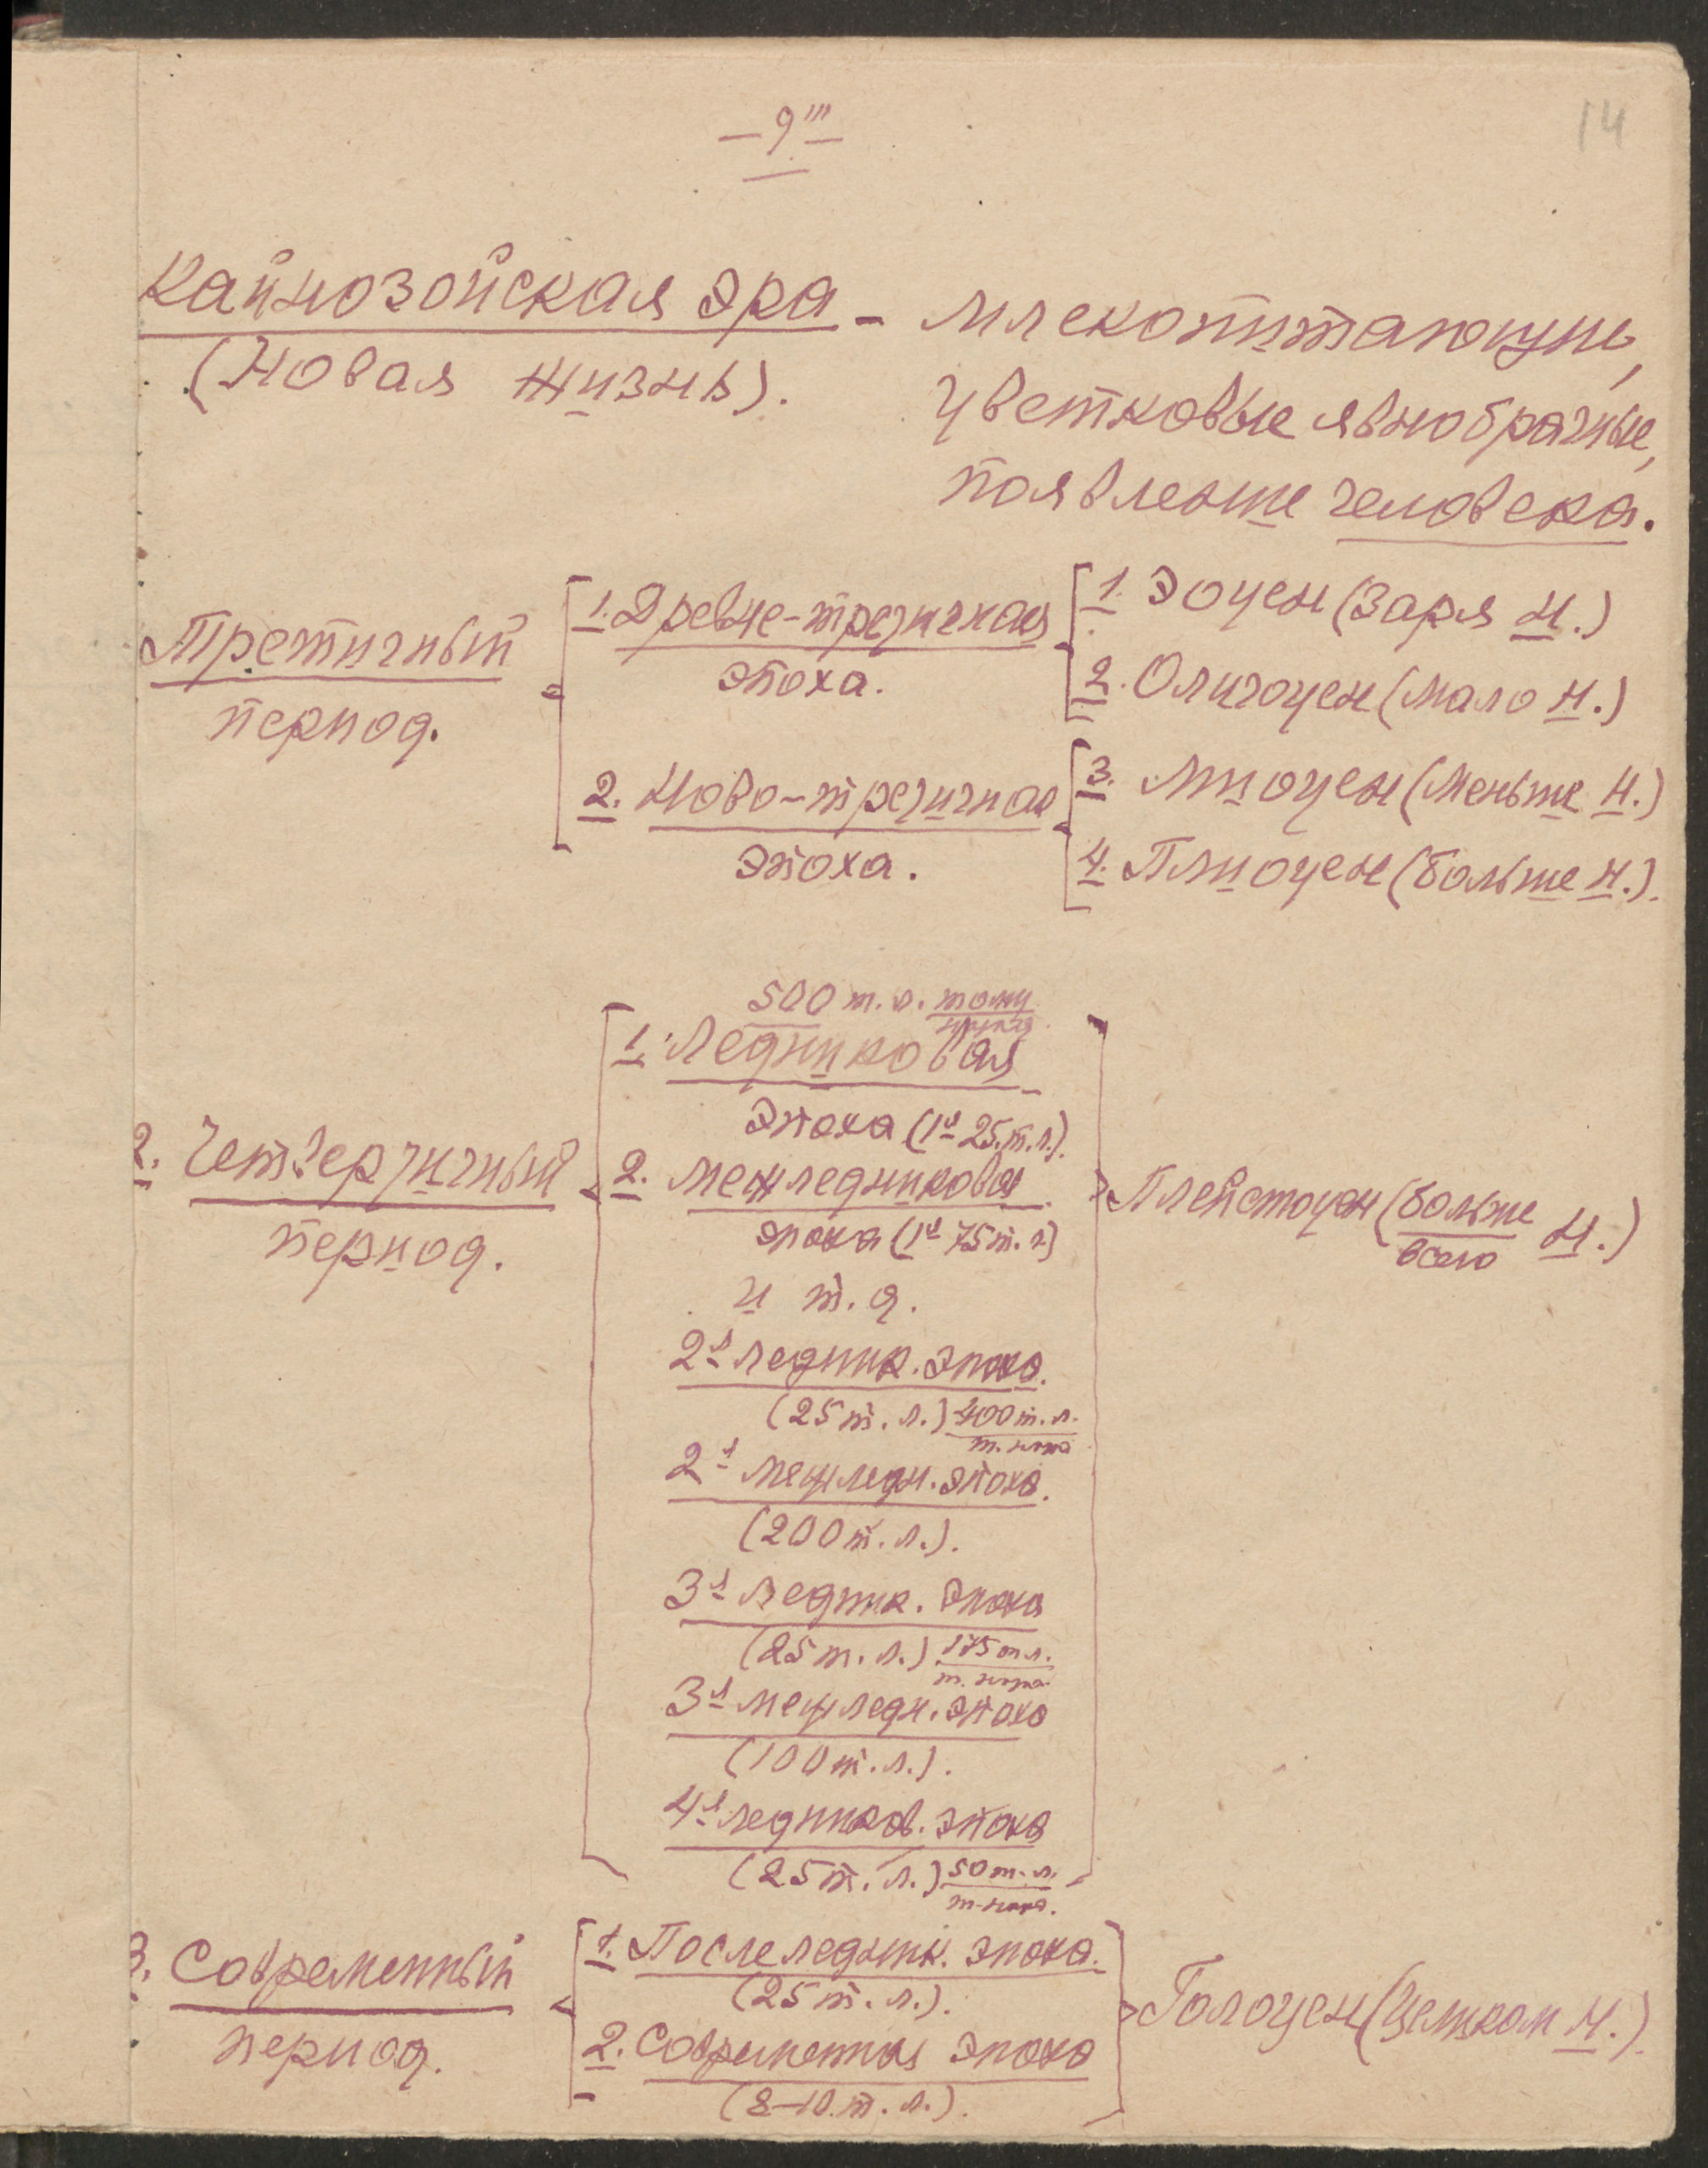 – 9''' –
14
Кайнозойская эра – млекопитающие,
(Новая жизнь).
цветковые явнобрачные,
появление человека.
Третичный
период.
1. Древне-третичная
эпоха.
1. Эоцен (Заря н.)
2. Олигоцен (мало н.)
2. Ново-третичная
эпоха.
3. Миоцен (Меньше н.)
4. Плиоцен (больше н.).
2. Четвертичный
период.
500 т. л. тому
назад.
1. Ледниковая
эпоха (1я 25 т. л.).
2. Межледниковая
эпоха (1я 75 т. л.)
и т. д.
2я ледник. эпоха.
(25 т. л.) 400 т. л.
т. назад
2я межледн. эпоха.
(200 т. л.).
3я ледник. эпоха
(25 т. л.) 175 т. л.
т. назад.
3я межледн. эпоха
(100 т. л.).
4я ледников. эпоха
(25 т. л.) 50 т. л.
т. назад.
Плейстоцен (больше
всего н.)
3. Современный
период.
1. Послеледник. эпоха.
(25 т. л.).
2. Современная эпоха
(8–10 т. л.).
Голоцен (Целиком н.).